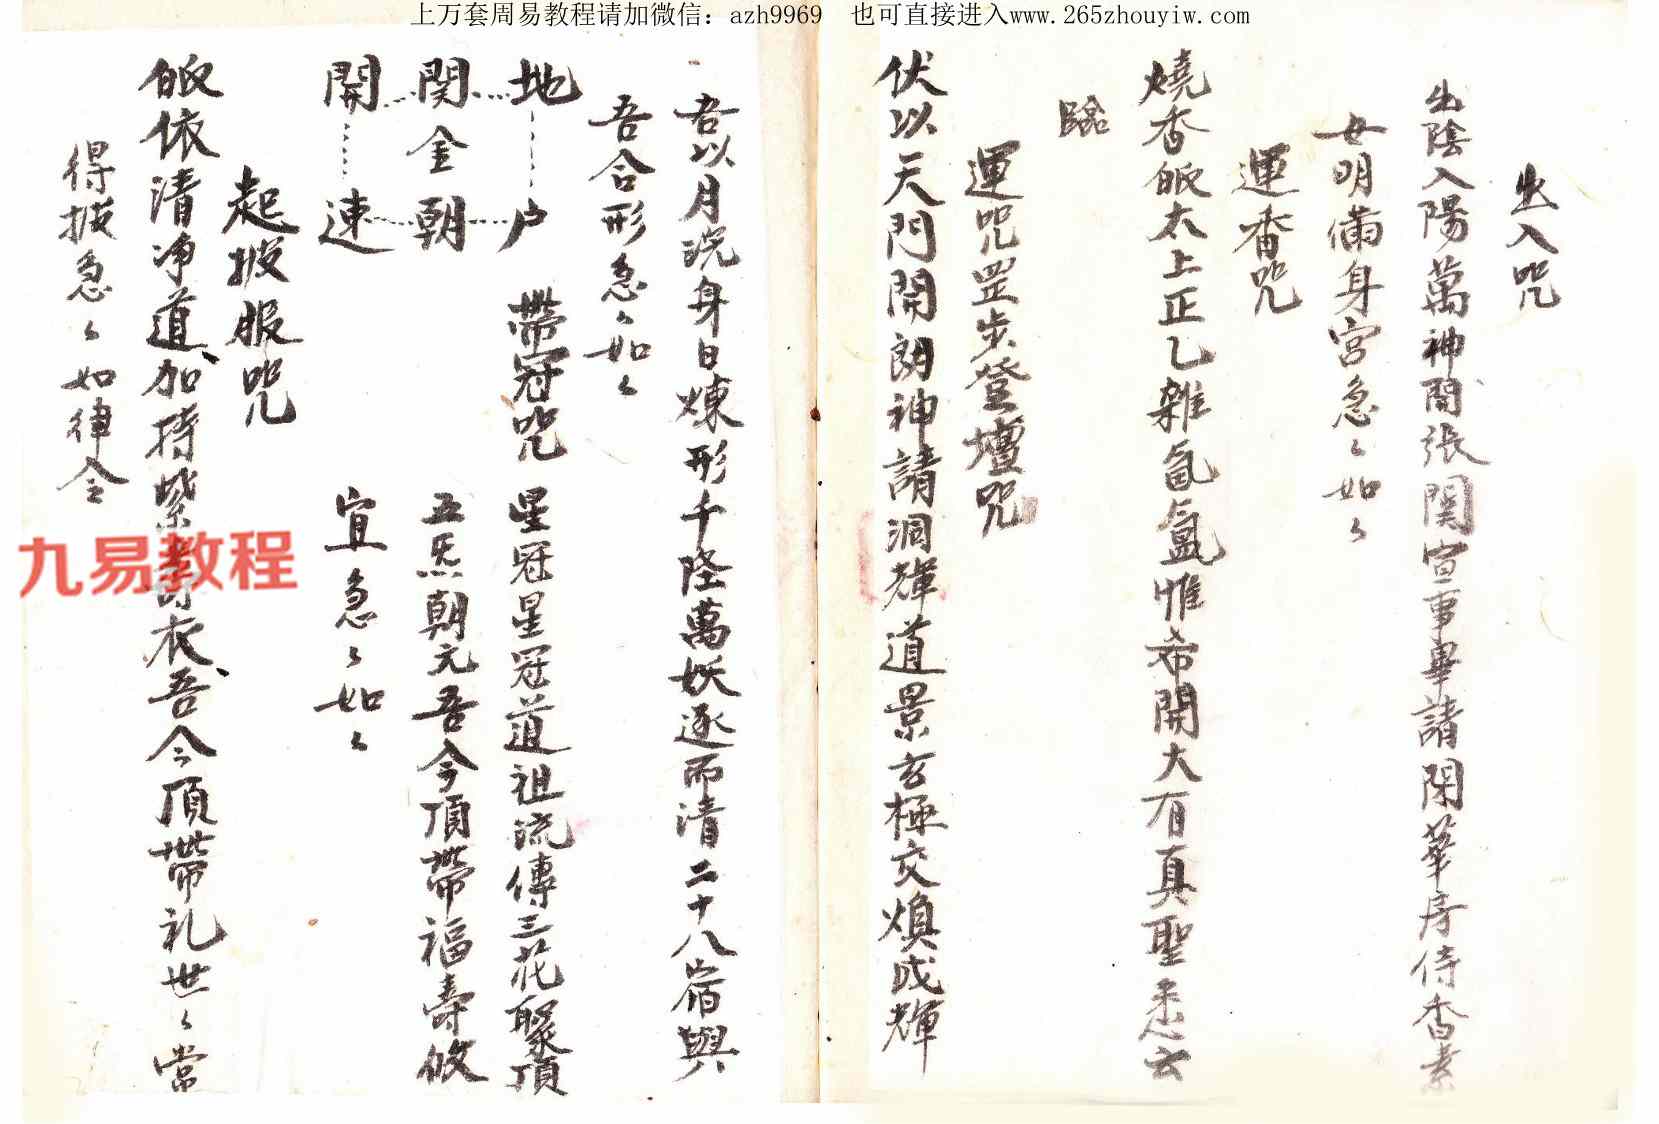 上万套周易教程请加微信：azh9969　也可直接进入www.265zhouyiw.com
出入咒
出陰入陽萬神開張関宣事畢請閑華房侍香素
女明備身宮急〻如〻
運香咒
燒香皈太上正乙雜氤氳惟希開大有真聖悉云
臨
運咒罡步登壇咒
伏以天門開朗神請洞輝道景玄極交煥成輝
吾以月浣身日煉形千陸萬妖逐而清二十八宿與
吾合形急〻如〻
地戶
帶冠咒
星冠星冠道祖流傳三花聚頂
関金朝
五炁朝元吾今頂帶福壽攸
開速
宜急〻如〻
起披服咒
皈依清净道加持紫壽衣吾今頂帶礼世〻常
得披急〻如律令
九易教程